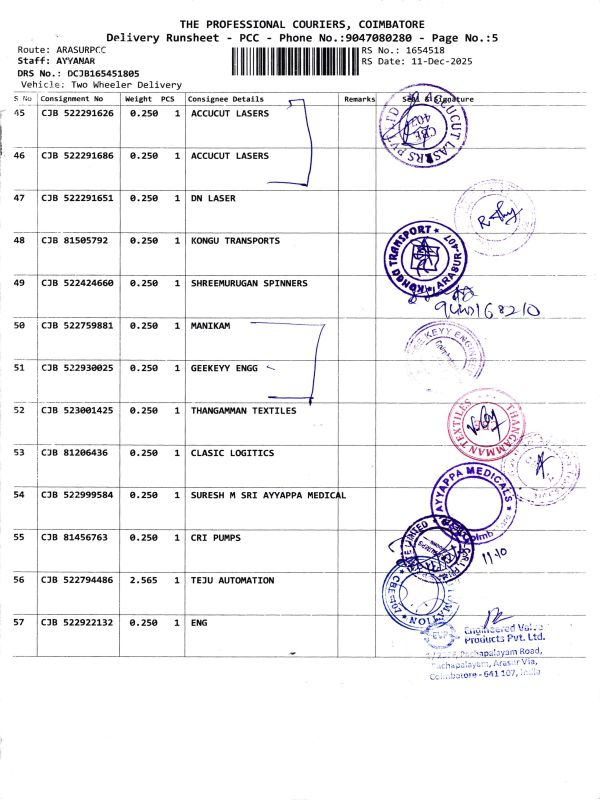 THE PROFESSIONAL COURIERS, COIMBATORE
Delivery Runsheet - PCC - Phone No.:9047080280 - Page No.:5
Route: ARASURPCC
RS No.: 1654518
Staff: AYYANAR
RS Date: 11-Dec-2025
DRS No.: DCJB165451805
Vehicle: Two Wheeler Delivery
S No Consignment No Weight PCS Consignee Details Remarks Seal & Signature
45 CJB 522291626 0.250 1 ACCUCUT LASERS
46 CJB 522291686 0.250 1 ACCUCUT LASERS
47 CJB 522291651 0.250 1 DN LASER
48 CJB 81505792 0.250 1 KONGU TRANSPORTS
49 CJB 522424660 0.250 1 SHREEMURUGAN SPINNERS
50 CJB 522759881 0.250 1 MANIKAM
51 CJB 522930025 0.250 1 GEEKEYY ENGG
52 CJB 523001425 0.250 1 THANGAMMAN TEXTILES
THANGAMMAN TEXTILES
53 CJB 81206436 0.250 1 CLASIC LOGITICS
54 CJB 522999584 0.250 1 SURESH M SRI AYYAPPA MEDICAL
AYYAPPA MEDICALS
55 CJB 81456763 0.250 1 CRI PUMPS
11.10
56 CJB 522794486 2.565 1 TEJU AUTOMATION
57 CJB 522922132 0.250 1 ENG
EVP
Engineered Valve
Products Pvt. Ltd.
Pachapalayam Road,
Pachapalayam, Arasur Via,
Coimbatore - 641 107, India